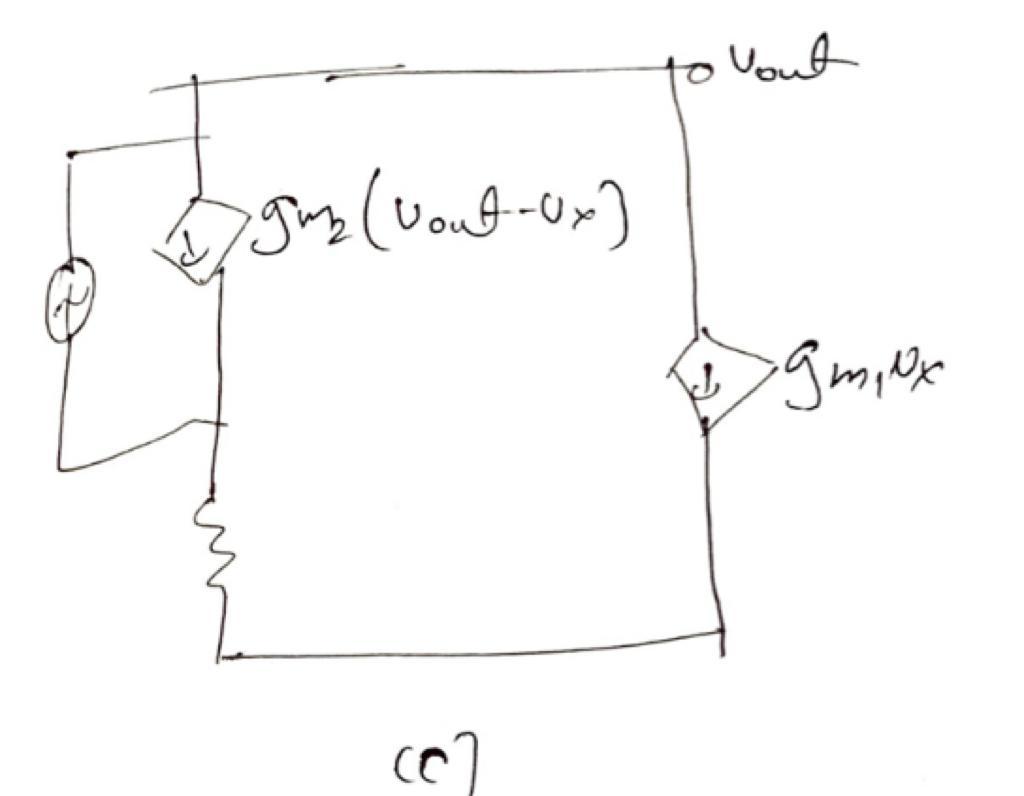 Vout
gm2(Vout-Vx)
gm1Vx
(c)